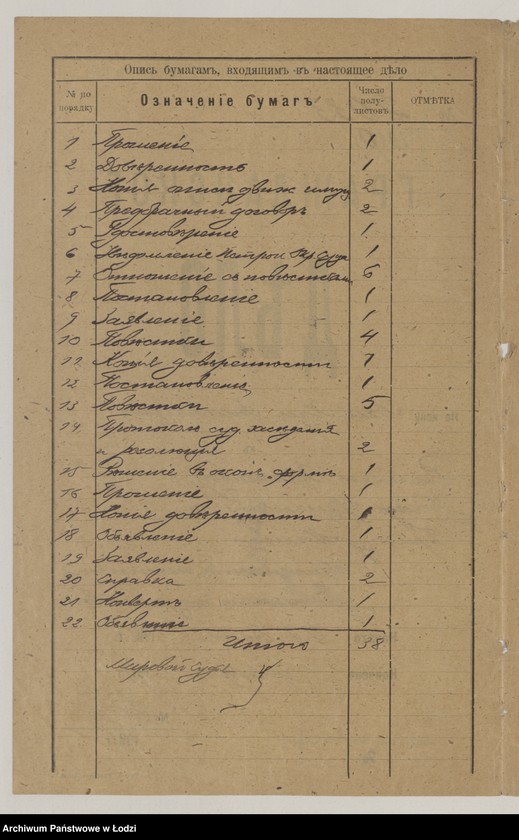 Опись бумагамъ, входящимъ въ настоящее дѣло
№ по порядку
Означеніе бумагъ
Число полу-листовъ
ОТМѢТКА
1 Прошеніе 1
2 Довѣренность 1
3 Копія описи движ. имущ. 2
4 Предбрачный договоръ 2
5 Удостовѣреніе 1
6 Увѣдомленіе Петрок. Окр. Суда 1
7 Отношеніе съ повѣстками 6
8 Постановленіе 1
9 Заявленіе 1
10 Повѣстки 4
11 Копія довѣренности 1
12 Постановленіе 1
13 Повѣстки 5
14 Протоколъ суд. засѣданія
и резолюція 2
15 Рѣшеніе въ оконч. формѣ 1
16 Прошеніе 1
17 Копія довѣренности 1
18 Объявленіе 1
19 Заявленіе 1
20 Справка 2
21 Конвертъ 1
22 Объявленіе 1
Итого 38
Мировой Судья
Archiwum Państwowe w Łodzi